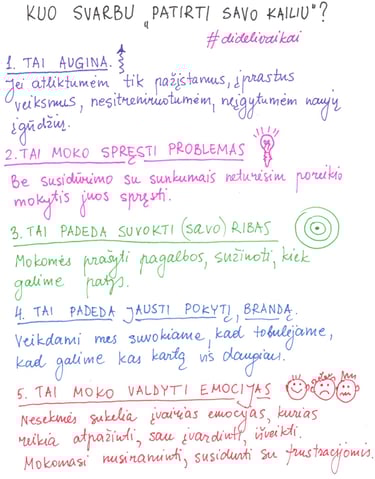 KUO SVARBU „PATIRTI SAVO KAILIU"?
#didelivaikai
1. TAI AUGINA.
Jei atliktumėm tik pažįstamus, įprastus
veiksmus, nesitreniruotumėm, neįgytumėm naujų
įgūdžių.
2. TAI MOKO SPRĘSTI PROBLEMAS
Be susidūrimo su sunkumais neturėsim poreikio
mokytis juos spręsti.
3. TAI PADEDA SUVOKTI (savo) RIBAS
Mokomės prašyti pagalbos, sužinoti, kiek
galime patys.
4. TAI PADEDA JAUSTI POKYTĮ, BRANDĄ.
Veikdami mes suvokiame, kad tobulėjame,
kad galime kas kartą vis daugiau.
5. TAI MOKO VALDYTI EMOCIJAS
Nesėkmės sukelia įvairias emocijas, kurias
reikia atpažinti, sau įvardinti, išveikti.
Mokomasi nusiraminti, susidurti su frustracijomis.